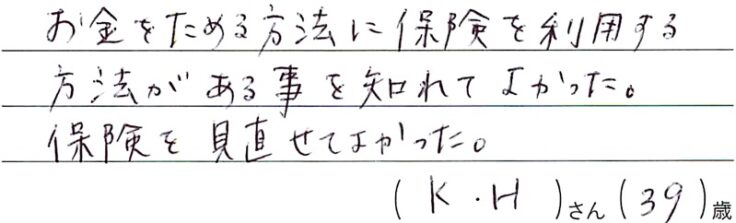 お金をためる方法に保険を利用する
方法がある事を知れてよかった。
保険を見直せてよかった。
(K・H)さん(39)歳